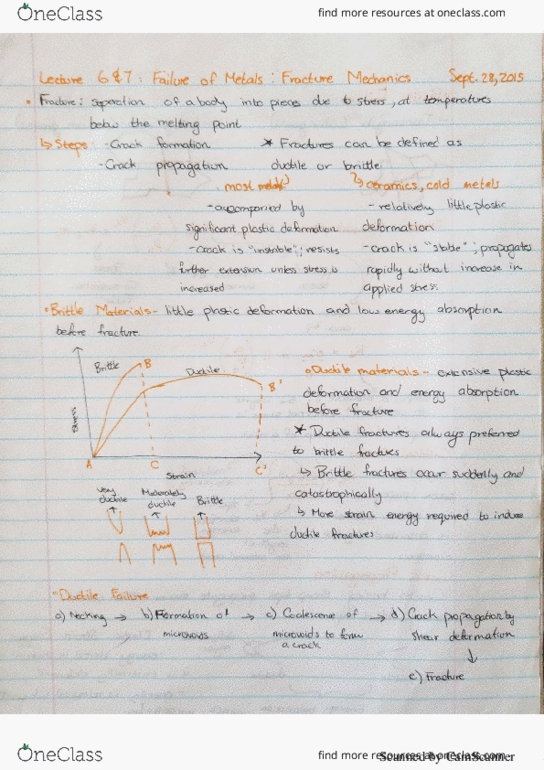 OneClass
find more resources at oneclass.com
Lecture 6 & 7 : Failure of Metals : Fracture Mechanics Sept. 28, 2015
• Fracture: separation of a body into pieces due to stress, at temperatures
below the melting point
↳ Steps: - Crack formation
- Crack propagation
* Fractures can be defined as
ductile or brittle
most metals
- accompanied by
significant plastic deformation
- crack is "instable"; resists
further extension unless stress is
increased
↳ ceramics, cold metals
- relatively little plastic
deformation
- crack is "stable"; propagates
rapidly without increase in
applied stress
• Brittle Materials - little plastic deformation and low energy absorption
before fracture
Brittle
B
Ductile
B'
Stress
A
C
C'
Strain
Very
ductile
Moderately
ductile
Brittle
o Ductile materials - extensive plastic
deformation and energy absorption
before fracture
* Ductile fractures always preferred
to brittle fractures
↳ Brittle fractures occur suddenly and
catastrophically
↳ More strain energy required to induce
ductile fractures
• Ductile Failure
a) Necking → b) Formation of → c) Coalescence of → d) Crack propagation by
microvoids
microvoids to form
a crack
shear deformation
↓
e) Fracture
OneClass
find more resources at oneclass.com
Scanned by CamScanner